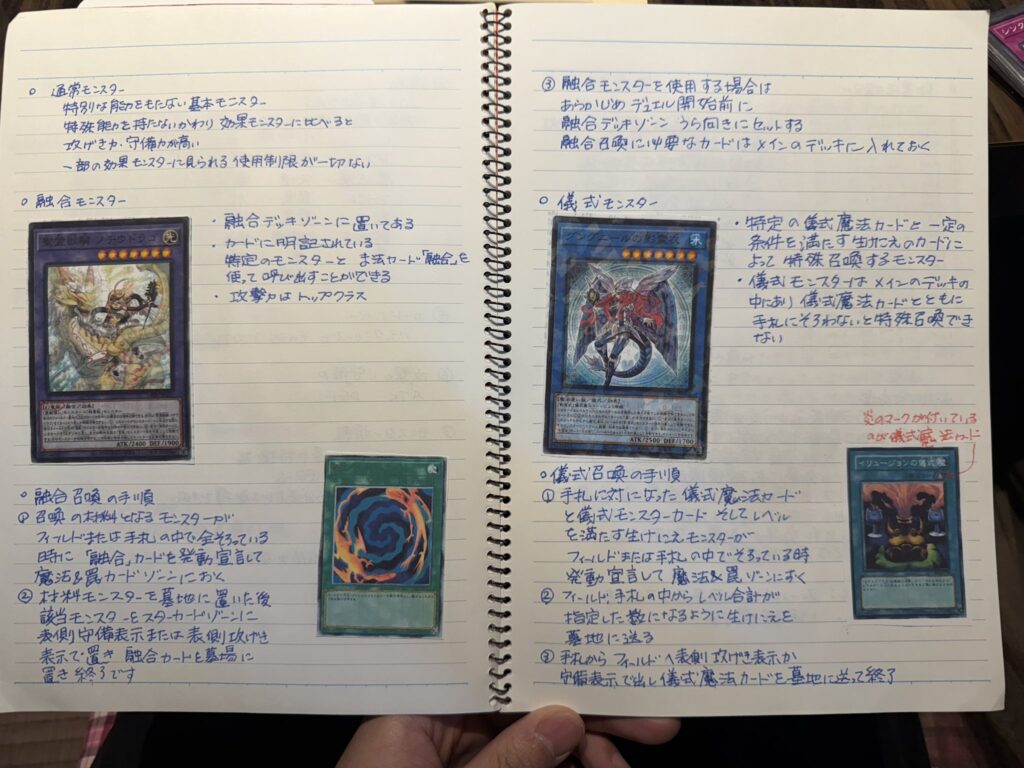 ○ 通常モンスター
特別な能力をもたない基本モンスター
特殊能力を持たないかわり 効果モンスターに比べると
攻げき力・守備力が高い
一部の効果モンスターに見られる 使用制限が一切ない
○ 融合モンスター
・融合デッキゾーンに置いてある
・カードに明記されている
特定のモンスターと 魔法カード「融合」を
使って呼び出すことができる
・攻撃力はトップクラス
ATK/2400 DEF/1900
○ 融合召喚の手順
① 召喚の材料となるモンスターが
フィールドまたは手札の中で全そろっている
時に「融合」カードを発動宣言して
魔法&罠カードゾーンにおく
② 材料モンスターを墓地に置いた後
該当モンスターをスターカードゾーンに
表側守備表示または表側攻げき
表示で置き 融合カードを墓場に
置き 終了です
③ 融合モンスターを使用する場合は
あらかじめ デュエル開始前に
融合デッキゾーン うら向きにセットする
融合召喚に必要なカードはメインのデッキに入れておく
○ 儀式モンスター
グングニールの影霊衣
・特定の儀式魔法カードと一定の
条件を満たす生けにえのカードに
よって特殊召喚するモンスター
・儀式モンスターはメインのデッキの
中にあり 儀式魔法カードとともに
手札にそろわないと特殊召喚でき
ない
ATK/2500 DEF/1700
炎のマークが付いている
のが儀式魔法カード
イリュージョンの儀式
○ 儀式召喚の手順
① 手札に対になった儀式魔法カード
と儀式モンスターカード そしてレベル
を満たす生けにえモンスターが
フィールドまたは手札の中でそろっている時
発動宣言して 魔法&罠ゾーンにおく
② フィールド、手札の中から レベル合計が
指定した数になるように生けにえを
墓地に送る
③ 手札から フィールドへ表側攻げき表示か
守備表示で出し儀式魔法カードを墓地に送って終了